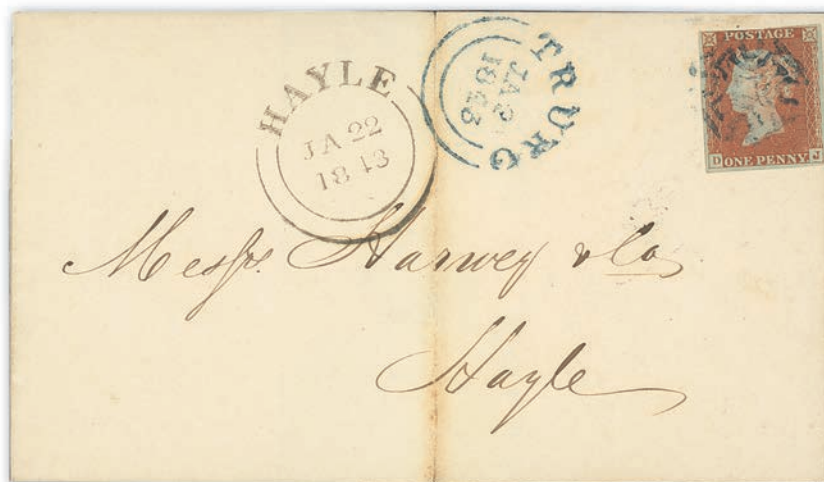 HAYLE
JA 22
1843
TRURO
JA 2
1843
POSTAGE
D ONE PENNY J
Messrs. Harvey & Co
Hayle